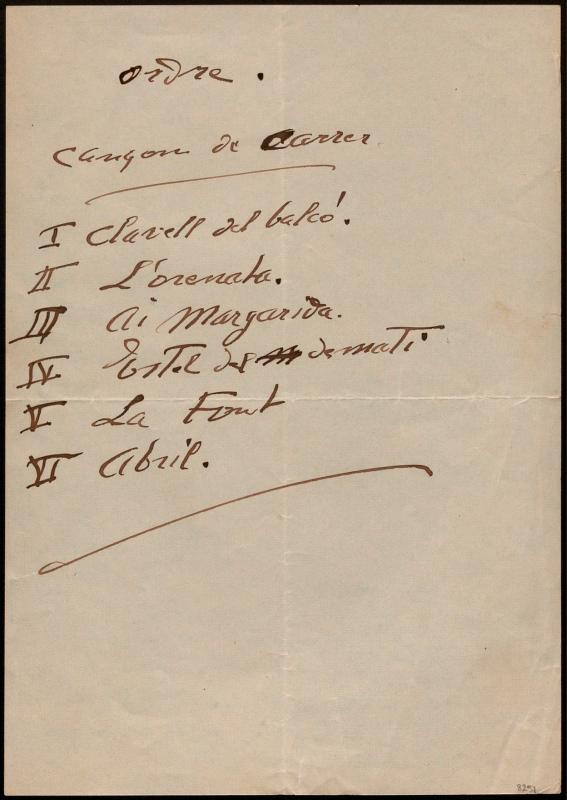 ordre.
Cançon de Carrer
I Clavell del balcó.
II L'orenata.
III Ai Margarida.
IV Estel del demati.
V La Font
VI Abril.